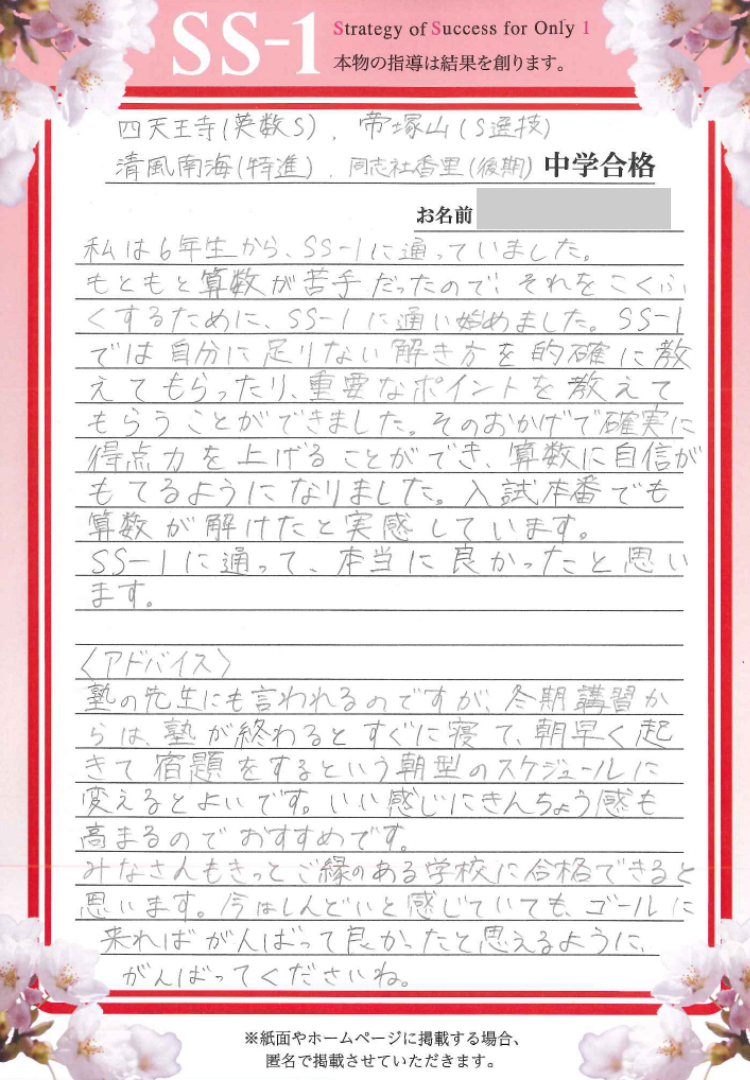 SS-1
Strategy of Success for Only 1
本物の指導は結果を創ります。
四天王寺(英数S)、帝塚山(S選技)
清風南海(特進)、同志社香里(後期) 中学合格
お名前
私は6年生から、SS-1に通っていました。
もともと算数が苦手だったので、それをこくふ
くするために、SS-1に通い始めました。SS-1
では自分に足りない解き方を的確に教
えてもらったり、重要なポイントを教えて
もらうことができました。そのおかげで確実に
得点力を上げることができ、算数に自信が
もてるようになりました。入試本番でも
算数が解けたと実感しています。
SS-1に通って、本当に良かったと思い
ます。
〈アドバイス〉
塾の先生にも言われるのですが、冬期講習か
らは、塾が終わるとすぐに寝て、朝早く起
きて宿題をするという朝型のスケジュールに
変えるとよいです。いい感じにきんちょう感も
高まるのでおすすめです。
みなさんもきっとご縁のある学校に合格できると
思います。今はしんどいと感じていても、ゴールに
来ればがんばって良かったと思えるように、
がんばってくださいね。
※紙面やホームページに掲載する場合、
匿名で掲載させていただきます。